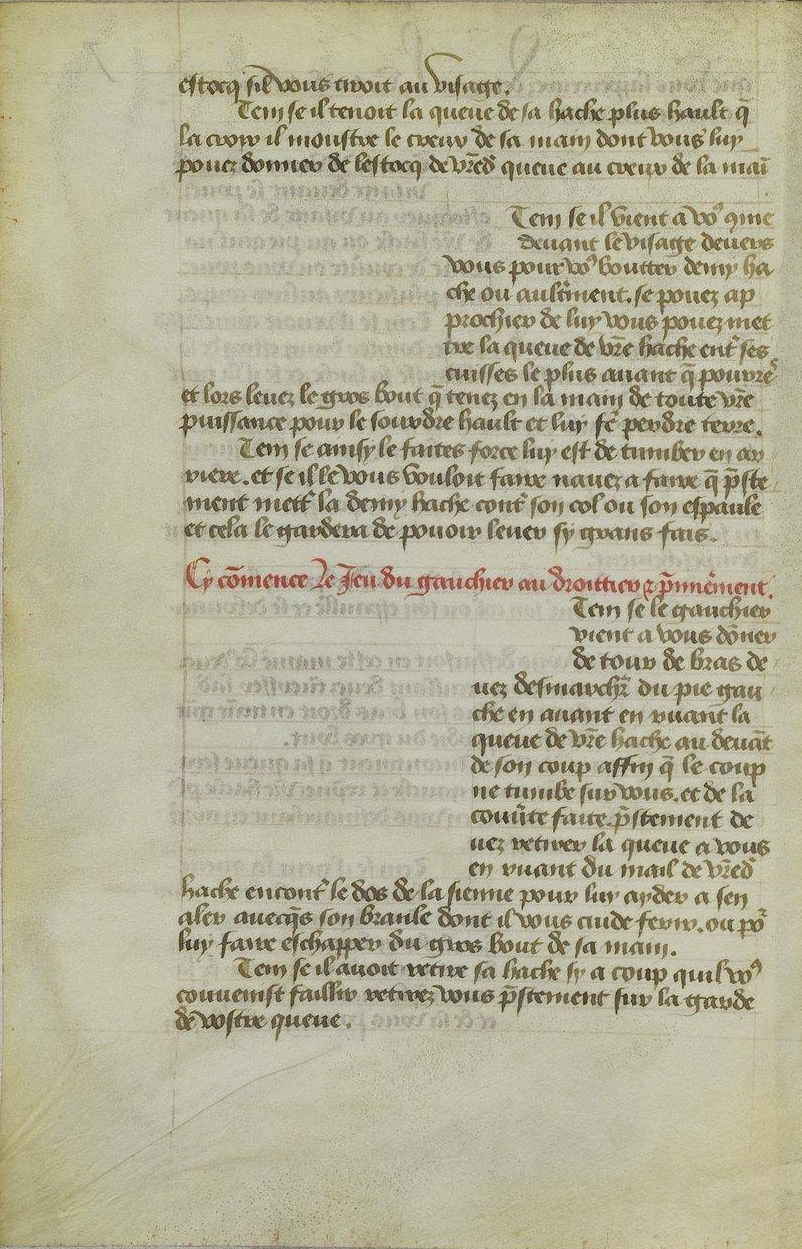 estocq sil vous tiroit au visage.
Tem se il tenoit la queue de sa hache plus hault q̄
la croix il monstre le creux de sa main dont vous luy
pouez donner de lestocq de vr̄ed queue au creux de la mai
Tem se il vient a vo9 9me
deuant le visage deuers
vous pour vo9 boutter demy ha
che ou aultr̄ment. se pouez ap
prochier de luy vous pouez met
tre la queue de vr̄e hache ent̄ ses
cuisses le plus auant q̄ pourre
et lors leuez le gros bout q̄ tenez en la main de toute vr̄e
puissance pour le sourdre hault et luy fē perdre terre.
Tem se ainsy le faites force luy est de tumber en ar
riere. et se il le vous vouloit faire nauez a faire q̄ p̄ste
ment mett̄ la demy hache cont̄ son col ou son espaule
et cela le gardera de pouoir leuer sy grans fais.
Cy cōmence Le Jeu du gauchier au droittier & p̄mierement.
Tem se le gauchier
vient a vous dōner
de tour de bras de
uez desmarchr̄ du pie gau
che en auant en ruant la
queue de vr̄e hache au deuāt
de son coup affin q̄ le coup
ne tumbe sur vous. et de la
couu̾te faite. p̄stement de
uez retirer la queue a vous
en ruant du mail de vr̄ed
hache encont̄ le dos de la sienne pour luy ayder a sen
aler auecq̄s son branle dont il vous cuide ferir. ou po᷑
luy faire eschapper du gros bout de sa main.
Tem se il auoit retire sa hache sy a coup quil vo9
conuenist faillir retirez vous p̄stement sur la garde
de vostre queue.